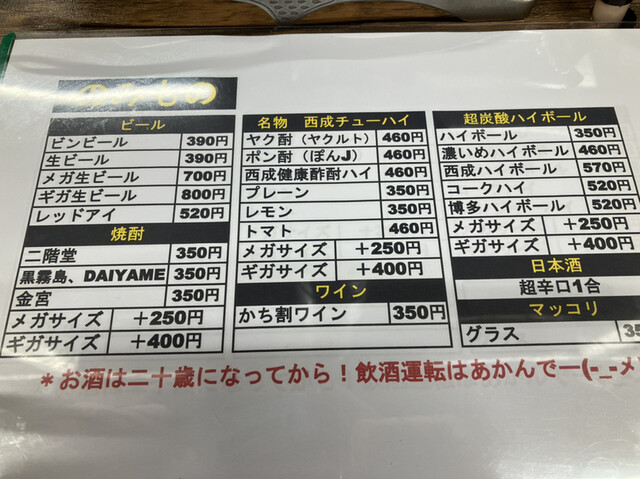 のみもの
ビール
ビンビール 390円
生ビール 390円
メガ生ビール 700円
ギガ生ビール 800円
レッドアイ 520円
焼酎
二階堂 350円
黒霧島、DAIYAME 350円
金宮 350円
メガサイズ +250円
ギガサイズ +400円
名物 西成チューハイ
ヤク酎（ヤクルト） 460円
ポン酎（ぽんJ） 460円
西成健康酢酎ハイ 460円
プレーン 350円
レモン 350円
トマト 460円
メガサイズ +250円
ギガサイズ +400円
ワイン
かち割ワイン 350円
超炭酸ハイボール
ハイボール 350円
濃いめハイボール 460円
西成ハイボール 570円
コークハイ 520円
博多ハイボール 520円
メガサイズ +250円
ギガサイズ +400円
日本酒
超辛口1合
マッコリ
グラス 35
＊お酒は二十歳になってから！飲酒運転はあかんでー(-_-メ